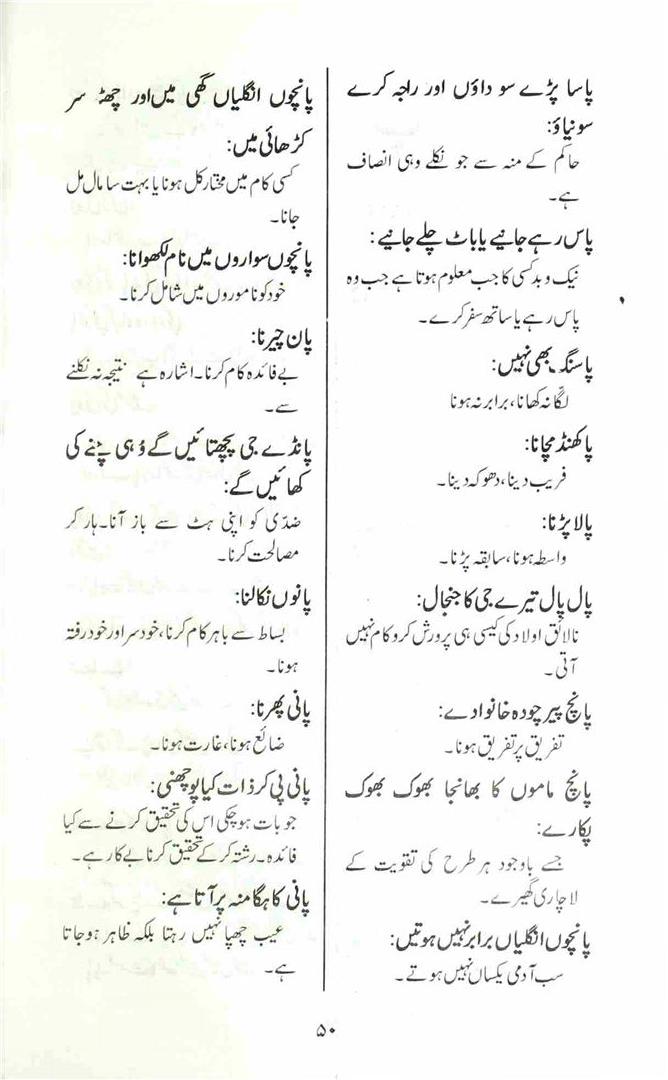 پاسا پڑے سو داؤں اور راجہ کرے
سونیاؤ:
حاکم کے منہ سے جو نکلے وہی انصاف
ہے۔
پاس رہے جانیے یا باٹ چلے جانیے:
نیک و بد کسی کا جب معلوم ہوتا ہے جب وہ
پاس رہے یا ساتھ سفر کرے۔
پاسنگ بھی نہیں:
لگّا نہ کھانا، برابر نہ ہونا
پاکھنڈ مچانا:
فریب دینا، دھوکہ دینا۔
پالا پڑنا:
واسطہ ہونا، سابقہ پڑنا۔
پال پال تیرے جی کا جنجال:
نالائق اولاد کی کیسی ہی پرورش کرو کام نہیں
آتی۔
پانچ پیر چودہ خانوادے:
تفریق پر تفریق ہونا۔
پانچ ماموں کا بھانجا بھوک بھوک
پکارے:
جسے باوجود ہر طرح کی تقویت کے
لاچاری گھیرے۔
پانچوں انگلیاں برابر نہیں ہوتیں:
سب آدمی یکساں نہیں ہوتے۔
پانچوں انگلیاں گھی میں اور چھٹا سر
کڑھائی میں:
کسی کام میں مختار کل ہونا یا بہت سا مال مل
جانا۔
پانچوں سواروں میں نام لکھوانا:
خود کو ناموروں میں شامل کرنا۔
پان چیرنا:
بے فائدہ کام کرنا۔ اشارہ ہے نتیجہ نہ نکلنے
سے۔
پانڈے جی پچھتائیں گے وُہی چنے کی
کھائیں گے:
ضدّی کو اپنی ہٹ سے باز آنا۔ ہار کر
مصالحت کرنا۔
پانوں نکالنا:
بساط سے باہر کام کرنا، خودسر اور خود رفتہ
ہونا۔
پانی پھرنا:
ضائع ہونا، غارت ہونا۔
پانی پی کر ذات کیا پوچھنی:
جو بات ہو چکی اس کی تحقیق کرنے سے کیا
فائدہ۔ رشتہ کر کے تحقیق کرنا بے کار ہے۔
پانی کا ہگا منہ پر آتا ہے:
عیب چھپا نہیں رہتا بلکہ ظاہر ہو جاتا
ہے۔
۵۰